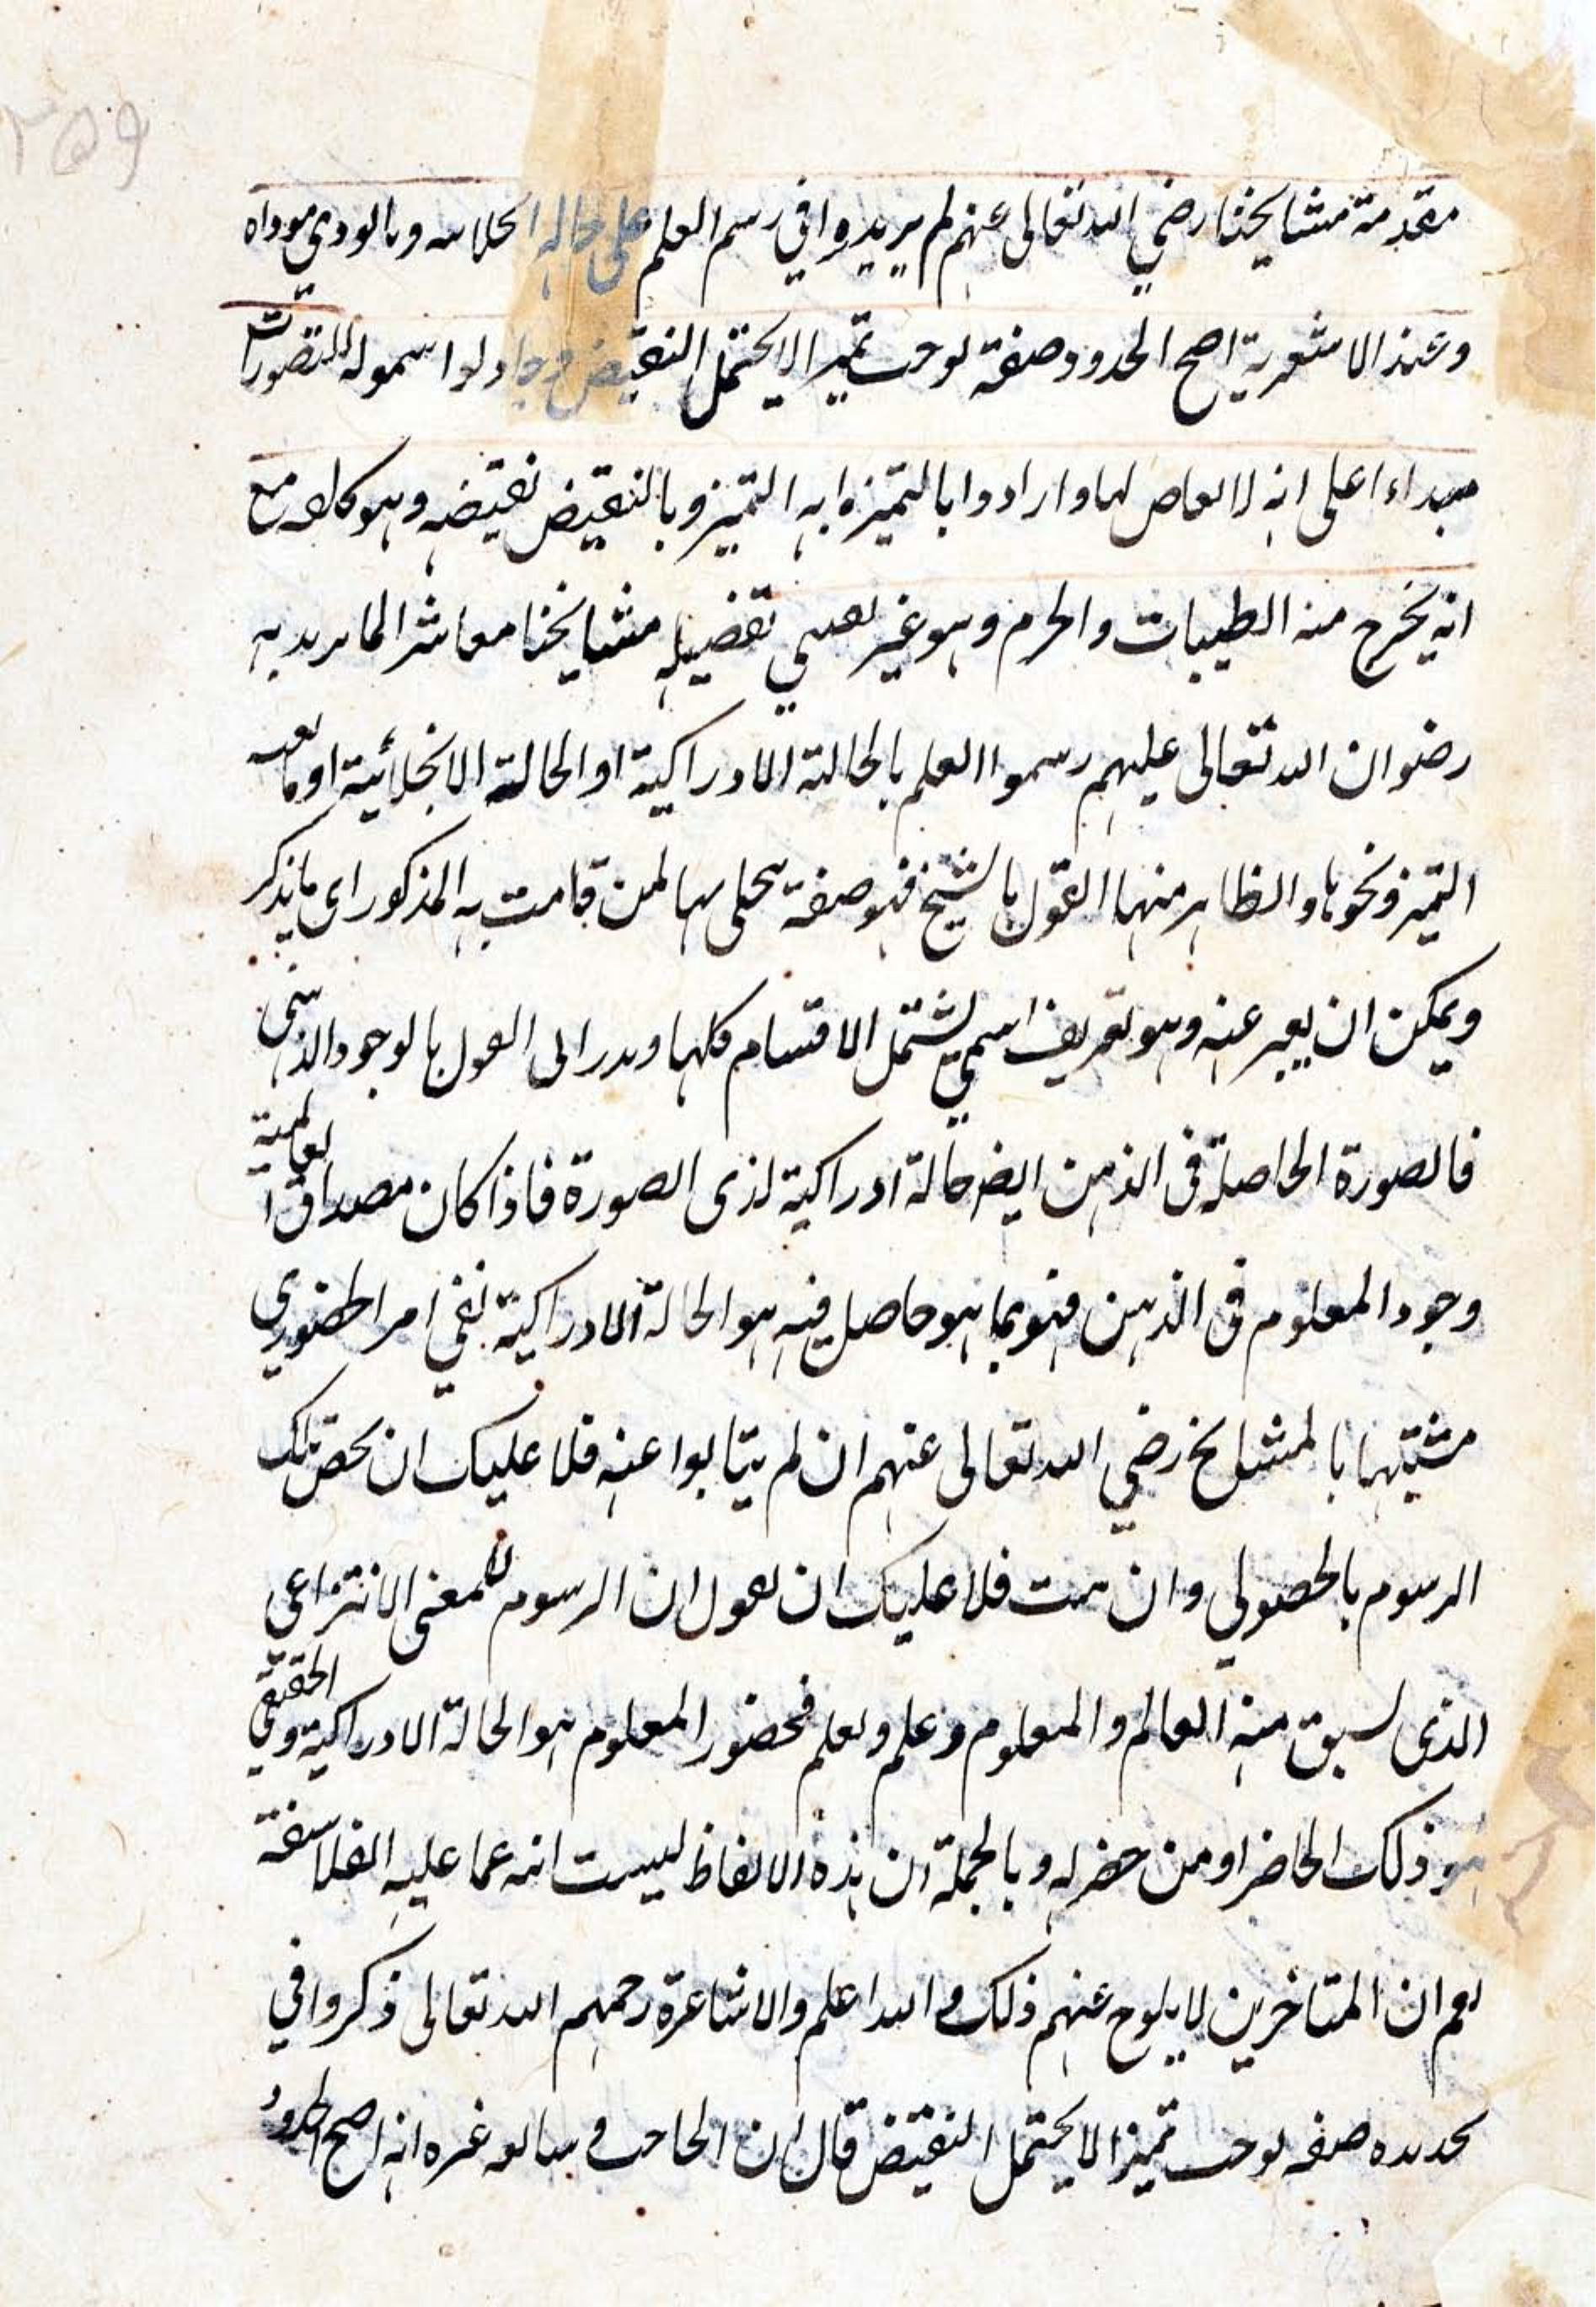 ٢٥٩
مقدمة مشايخنا رضي الله تعالى عنهم لم يريدوا في رسم العلم على حالة الجلائية وما يودي موداه
وعند الاشعرية اصح الحدود صفة توجب تميزا لا يحتمل النقيض وجاولوا شموله للتصورات
على انه لا نقاض لها وارادوا بالتميز ما به التميز وبالنقيض نقيضه وهو كلام مع
انه يخرج منه الطيبات والجزم وهو غير تفضيله مشايخنا معاشر الماتريدية
رضوان الله تعالى عليهم رسموا العلم بالحالة الادراكية او الحالة الانجلائية او ما به
التميز ونحوها والظاهر منها القول بالشبح فهو صفة يتجلى بها لمن قامت به المذكور اى ما يذكر
ويمكن ان يعبر عنه وهو تعريف اسمي يشتمل الاقسام كلها وبدر الى القول بالوجود الذهني
فالصورة الحاصلة فى الذهن ايضا حالة ادراكية لذى الصورة فاذا كان مصداق العالمية
وجود المعلوم فى الذهن فهو بما هو حاصل فيه هو الحالة الادراكية بقي امر الحضوري
مثبتيها بالمشايخ رضي الله تعالى عنهم ان لم يتابوا عنه فلا عليك ان تخص تلك
الرسوم بالحصولي وان شئت فلا عليك ان تقول ان الرسوم للمعنى الانتزاعى
الذى يسبق منه العالم والمعلوم وعلم ويعلم فحضور المعلوم هو الحالة الادراكية والحقيقي
هو ذلك الحاضر او من حضر له وبالجملة ان هذه الالفاظ ليست عما عليه الفلاسفة
نعم ان المتاخرين لا يلوح عنهم ذلك والله اعلم والاشاعرة رحمهم الله تعالى ذكروا في
تحديده صفة توجب تميزا لا يحتمل النقيض قال ابن الحاجب و غيره انه اصح الحدود